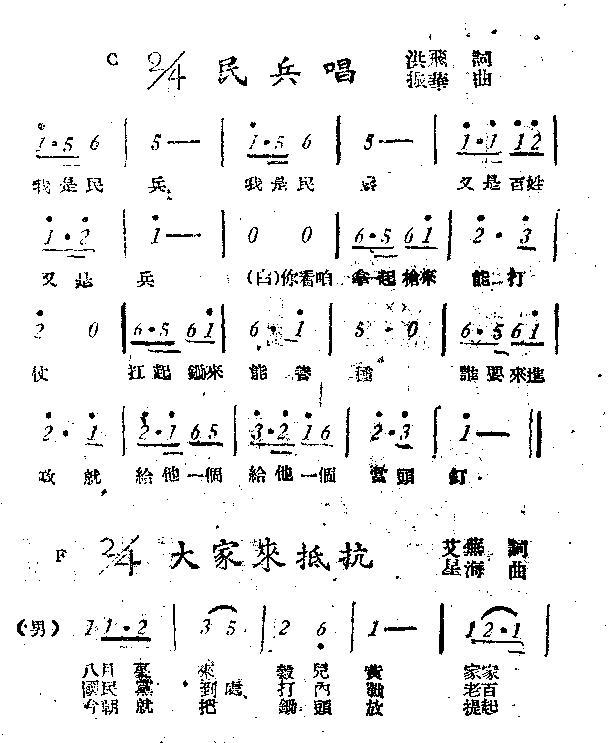 C 2/4 民兵唱 洪飛 詞
振華 曲
1·5 6 | 5— | 1·5 6 | 5— | 1·1 12
我是民 兵 我是民 兵 又是百姓
1·2 | 1— | 0 0 | 6·5 61 | 2·3
又是 兵 (白)你看咱 拿起槍來 能打
2 0 | 6·5 61 | 6·1 | 5·0 | 6·5 61
仗 扛起鋤來 能 種 誰要來進
2·1 | 2·1 65 | 3·2 16 | 2·3 | 1— ||
攻就 給他一個 給他一個 當頭 釘
F 2/4 大家來抵抗 艾蕪 詞
星海 曲
(男) 1 1·2 | 3 5 | 2 6 | 1— | 1 2·1 |
八月 來 穀兒 黃 家家
國民黨 到處 打內 戰 老百
今朝就 把 鋤頭 放 提起